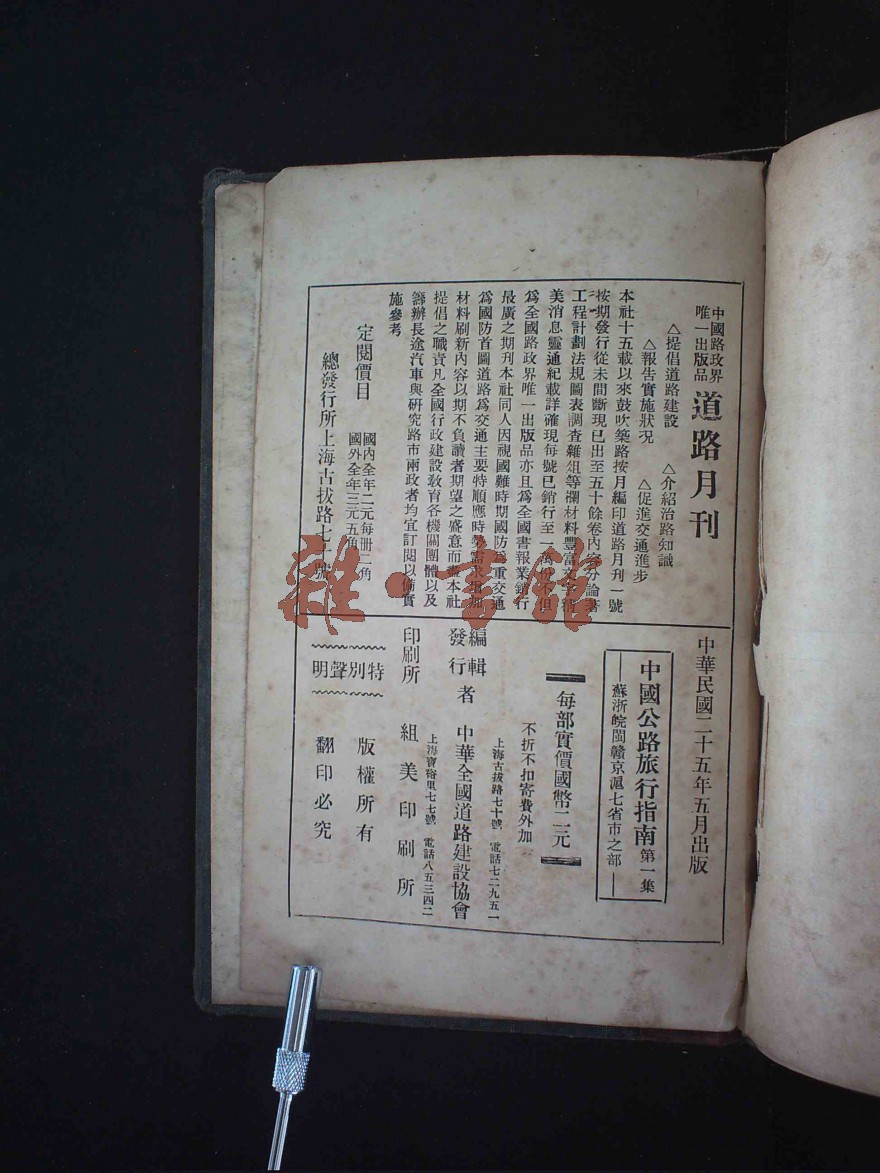 中國路政界
唯一出版品
道路月刊
△提倡道路建設
△介紹治路知識
△報告實施狀况
△促進交通進步
本社十五載以來鼓吹築路按月編印道路月刊一號
按期發行從未間斷現已出至五十餘卷內容分論著
工程計劃法規圖表調查雜俎等欄材料豐富文字精
美消息靈通紀載詳確現每號已銷行至一萬份不但
爲全國路政界唯一出版品亦且爲全國書報業銷行
最廣之期刊本社同人因視國難時期國防爲重交通
爲國防首圖道路爲交通主要特順應時勢需求增加
材料刷新內容以期不負讀者期望之盛意而盡本社
提倡之職責凡全國行政建設敎育各機關團體以及
籌辦長途汽車與硏究路市兩政者均宜訂閱以備實
施參考
定閱價目
國內全年二元每冊二角
國外全年三元五角
總發行所上海古拔路七十號
中華民國二十五年五月出版
中國公路旅行指南 第一集
—蘇浙皖閩贛京滬七省市之部—
每部實價國幣二元
不折不扣寄費外加
上海古拔路七十號 電話七二九五一
編輯
發行
者
中華全國道路建設協會
上海寶裕里七七號 電話八五三四二
印刷所 組美印刷所
特別聲明
版權所有
翻印必究
雜·書館